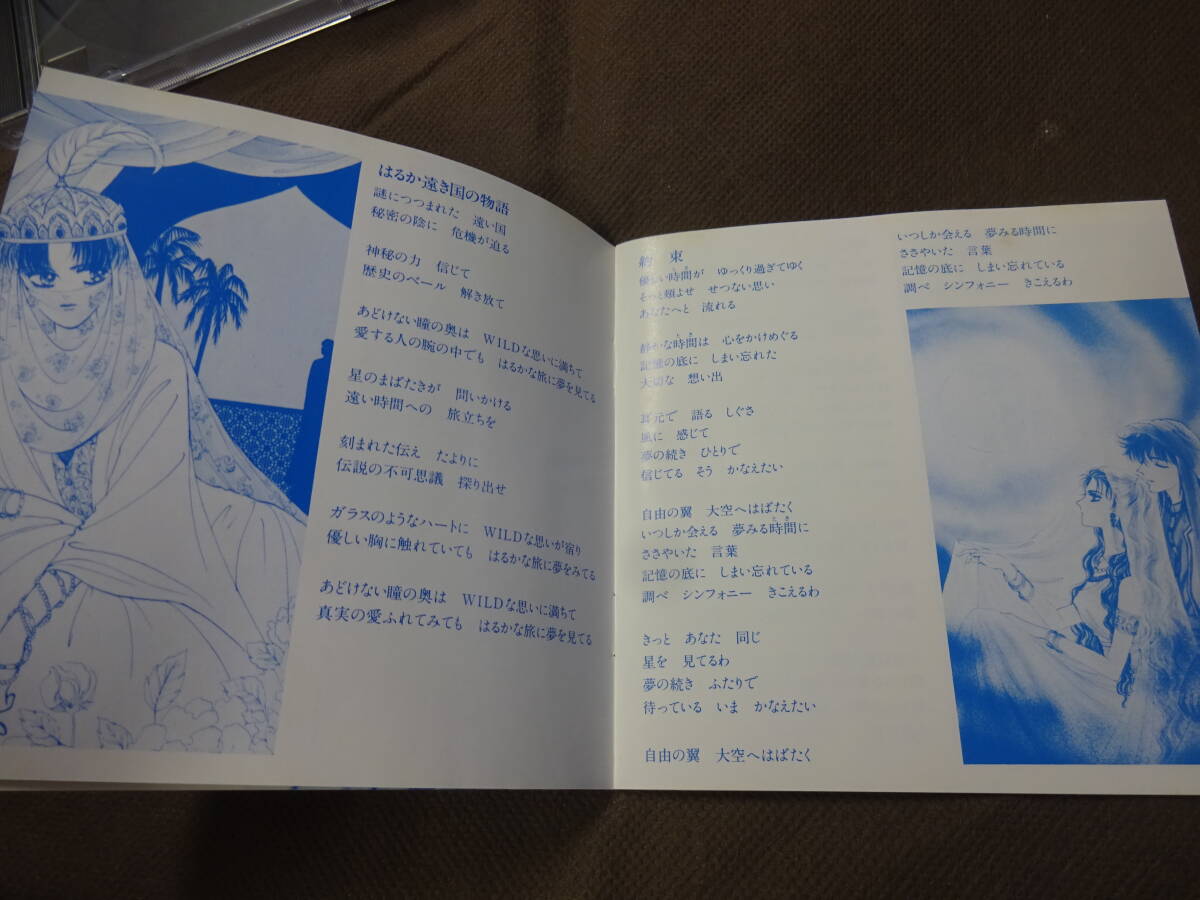 はるか遠き国の物語
謎につつまれた 遠い国
秘密の陰に 危機が迫る
神秘の力 信じて
歴史のベール 解き放て
あどけない瞳の奥は WILDな思いに満ちて
愛する人の腕の中でも はるかな旅に夢を見てる
星のまばたきが 問いかける
遠い時間への 旅立ちを
刻まれた伝え たよりに
伝説の不可思議 探り出せ
ガラスのようなハートに WILDな思いが宿り
優しい胸に触れていても はるかな旅に夢をみてる
あどけない瞳の奥は WILDな思いに満ちて
真実の愛ふれてみても はるかな旅に夢を見てる
約束
優しい時間が ゆっくり過ぎてゆく
そっと頬よせ せつない思い
あなたへと 流れる
静かな時間は 心をかけめぐる
記憶の底に しまい忘れた
大切な 想い出
耳元で 語る しぐさ
風に 感じて
夢の続き ひとりで
信じてる そう かなえたい
自由の翼 大空へはばたく
いつしか会える 夢みる時間に
ささやいた 言葉
記憶の底に しまい忘れている
調べ シンフォニー きこえるわ
きっと あなた 同じ
星を 見てるわ
夢の続き ふたりで
待っている いま かなえたい
自由の翼 大空へはばたく
いつしか会える 夢みる時間に
ささやいた 言葉
記憶の底に しまい忘れている
調べ シンフォニー きこえるわ